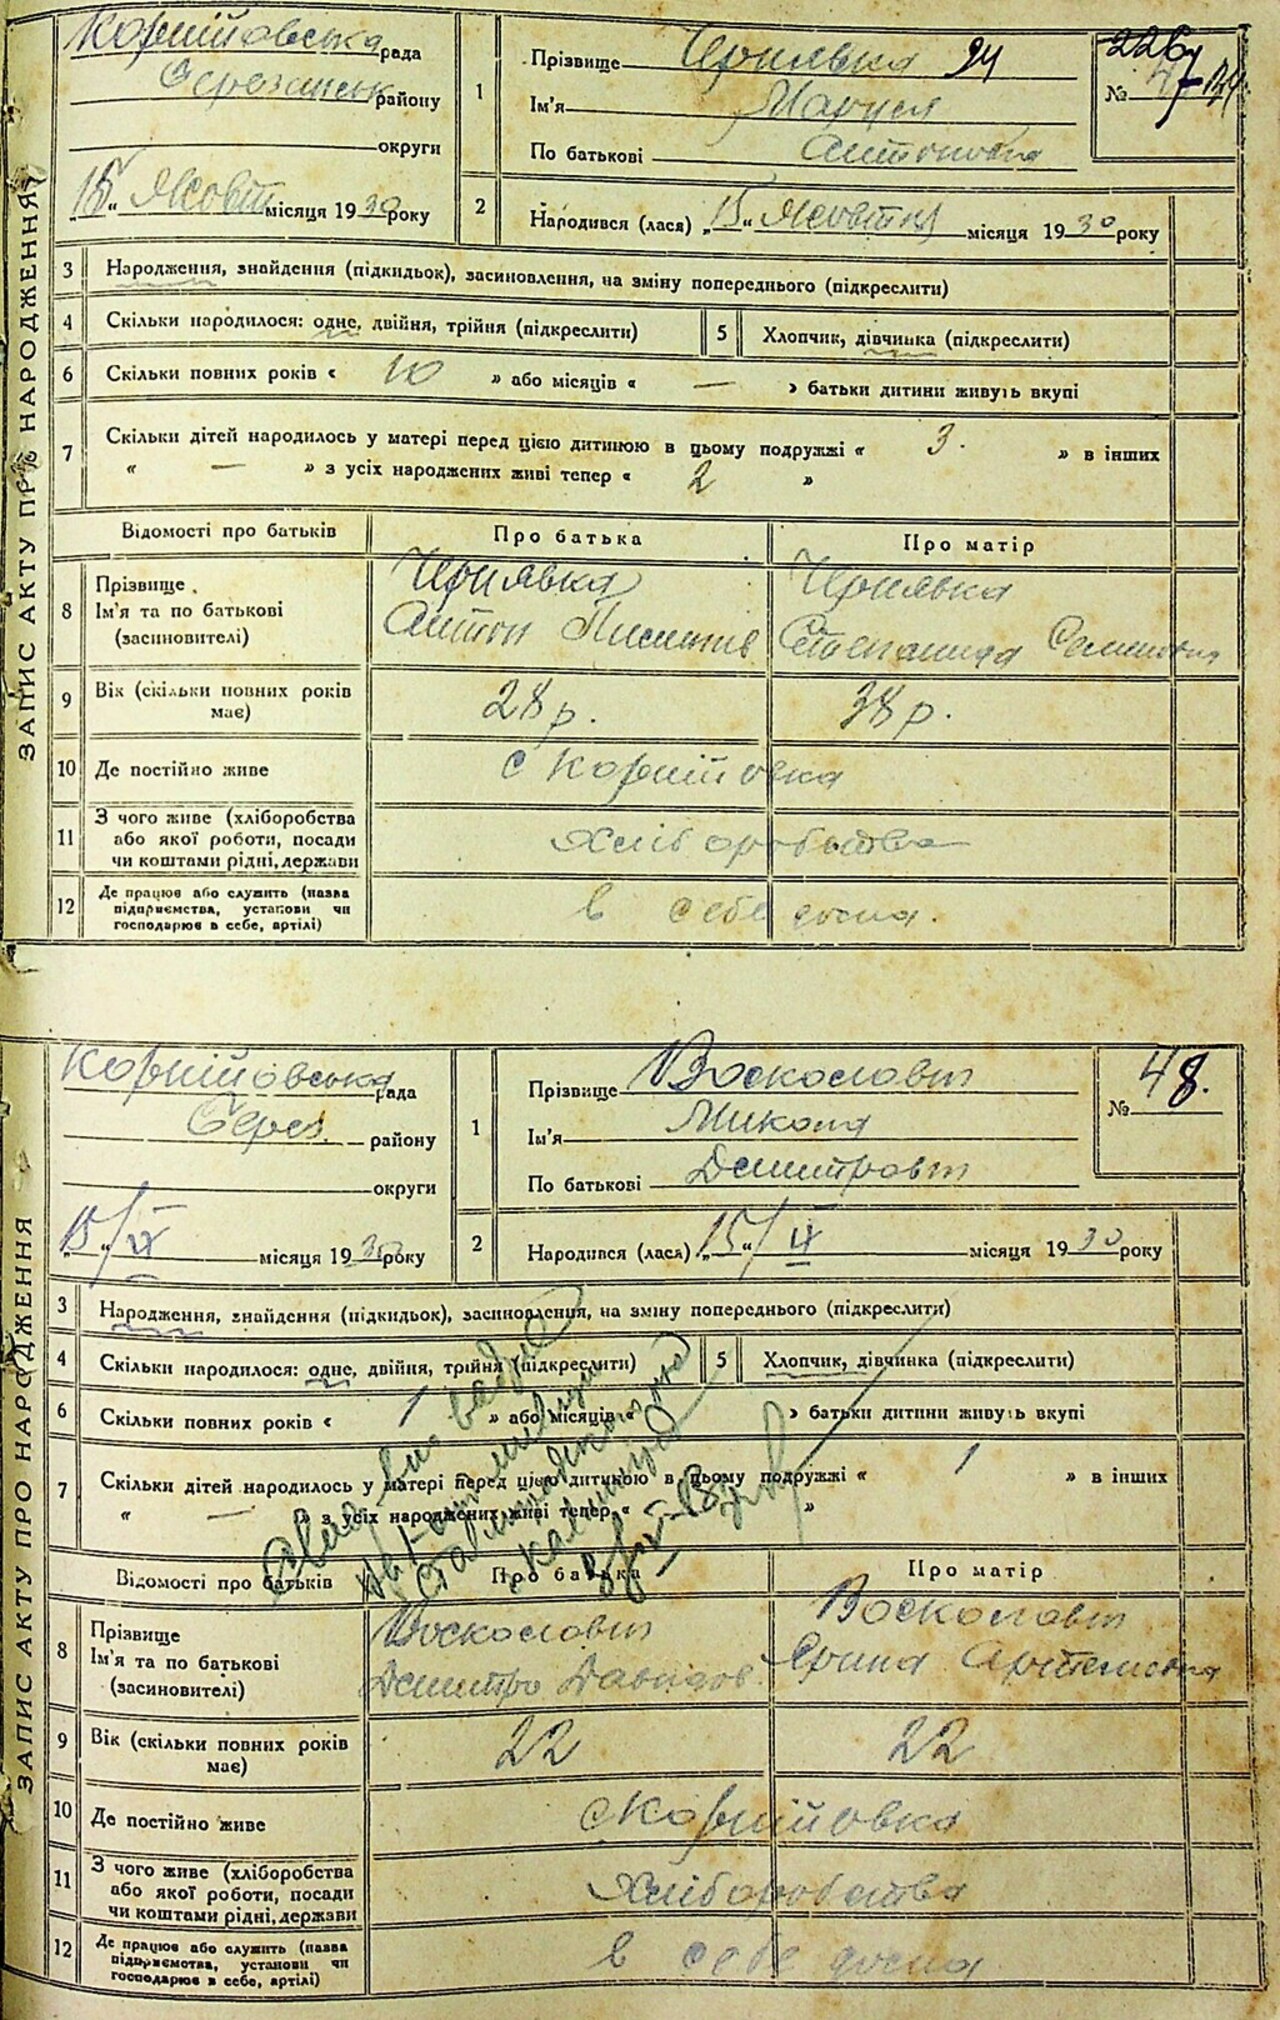 ЗАПИС АКТУ ПРО НАРОДЖЕННЯ
Корнійовська рада
району
округи
15 Жовт місяця 1930 року
1
Прізвище Чернявка 94
Ім'я Маруся
По батькові Антоновна
226
№
2
Народився (лася) „15“ Жовтня місяця 1930 року
3 Народження, знайдення (підкидьок), засиновлення, на зміну попереднього (підкреслити)
4 Скільки народилося: одне, двійня, трійня (підкреслити) 5 Хлопчик, дівчинка (підкреслити)
6 Скільки повних років « 10 » або місяців « — » батьки дитини живуть вкупі
7 Скільки дітей народилось у матері перед цією дитиною в цьому подружжі « 3. » в інших
« — » з усіх народжених живі тепер « 2 »
Відомості про батьків Про батька Про матір
8 Прізвище Чернявка Чернявка
Ім'я та по батькові Антон Степанида Семеновна
(засиновителі)
9 Вік (скільки повних років має) 28 р. 38 р.
10 Де постійно живе с Корнійовка
11 З чого живе (хліборобства
або якої роботи, посади
чи коштами рідні, держави
Хліборобства
12 Де працює або служить (назва
підприємства, установи чи
господарює в себе, артілі)
в себе дома.
ЗАПИС АКТУ ПРО НАРОДЖЕННЯ
Корнійовська рада
Берез. району
округи
15/IX місяця 1930 року
1
Прізвище Воскословит
Ім'я Микола
По батькові Дмитровит
№ 48.
2
Народився (лася) „15“/IX місяця 1930 року
3 Народження, знайдення (підкидьок), засиновлення, на зміну попереднього (підкреслити)
4 Скільки народилося: одне, двійня, трійня (підкреслити) 5 Хлопчик, дівчинка (підкреслити)
6 Скільки повних років « 1 » або місяців « » батьки дитини живуть вкупі
7 Скільки дітей народилось у матері перед цією дитиною в цьому подружжі « 1 » в інших
« — » з усіх народжених живі тепер « »
Відомості про батьків Про батька Про матір
8 Прізвище Воскословит Воскословит
Ім'я та по батькові Дмитро Давидов Ярина Артемовна
(засиновителі)
9 Вік (скільки повних років має) 22 22
10 Де постійно живе с Корнійовка
11 З чого живе (хліборобства
або якої роботи, посади
чи коштами рідні, держави
Хліборобства
12 Де працює або служить (назва
підприємства, установи чи
господарює в себе, артілі)
в себе дома